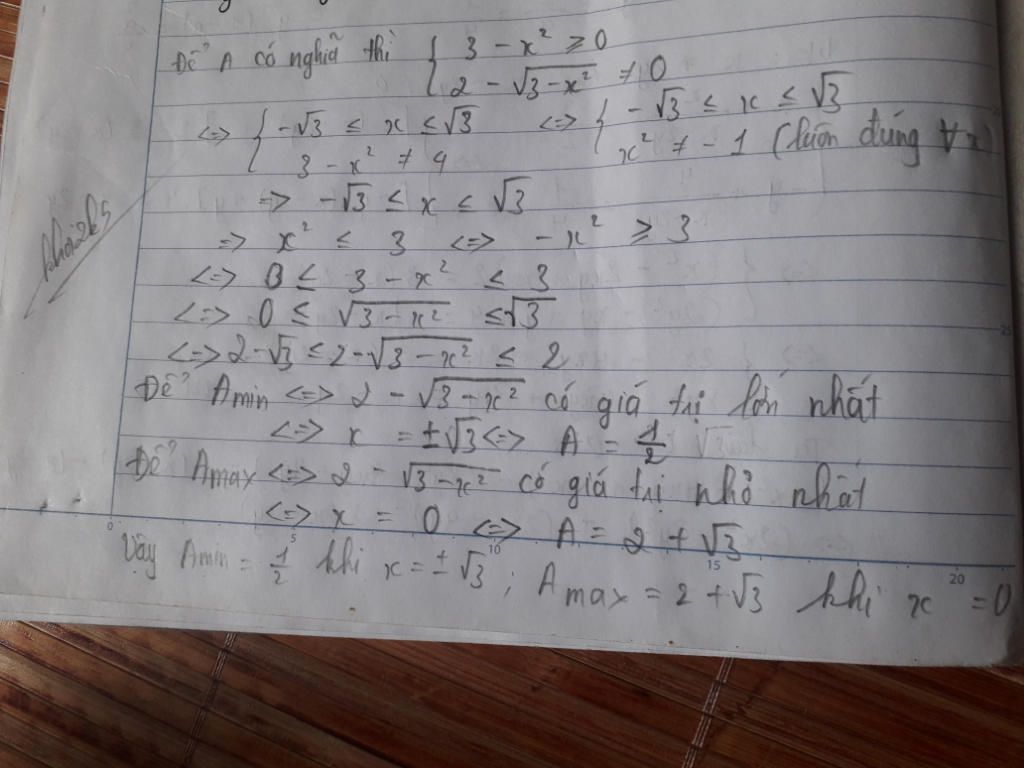 Để A có nghĩa thì { 3 - x² ≥ 0
2 - √(3-x²) ≠ 0
<=> { -√3 ≤ x ≤ √3 <=> { -√3 ≤ x ≤ √3
3 - x² ≠ 4 x² ≠ -1 (luôn đúng ∀x)
=> -√3 ≤ x ≤ √3
=> x² ≤ 3 <=> -x² ≥ 3
<=> 0 ≤ 3 - x² ≤ 3
<=> 0 ≤ √(3-x²) ≤ √3
<=> 2-√3 ≤ 2-√(3-x²) ≤ 2
Để Amin <=> 2 - √(3-x²) có giá trị lớn nhất
<=> x = ±√3 <=> A = 1/2
Để Amax <=> 2 - √(3-x²) có giá trị nhỏ nhất
<=> x = 0 <=> A = 2 + √3
0 5 10 15 20
Vậy Amin = 1/2 khi x = ±√3 ; Amax = 2 + √3 khi x = 0
25